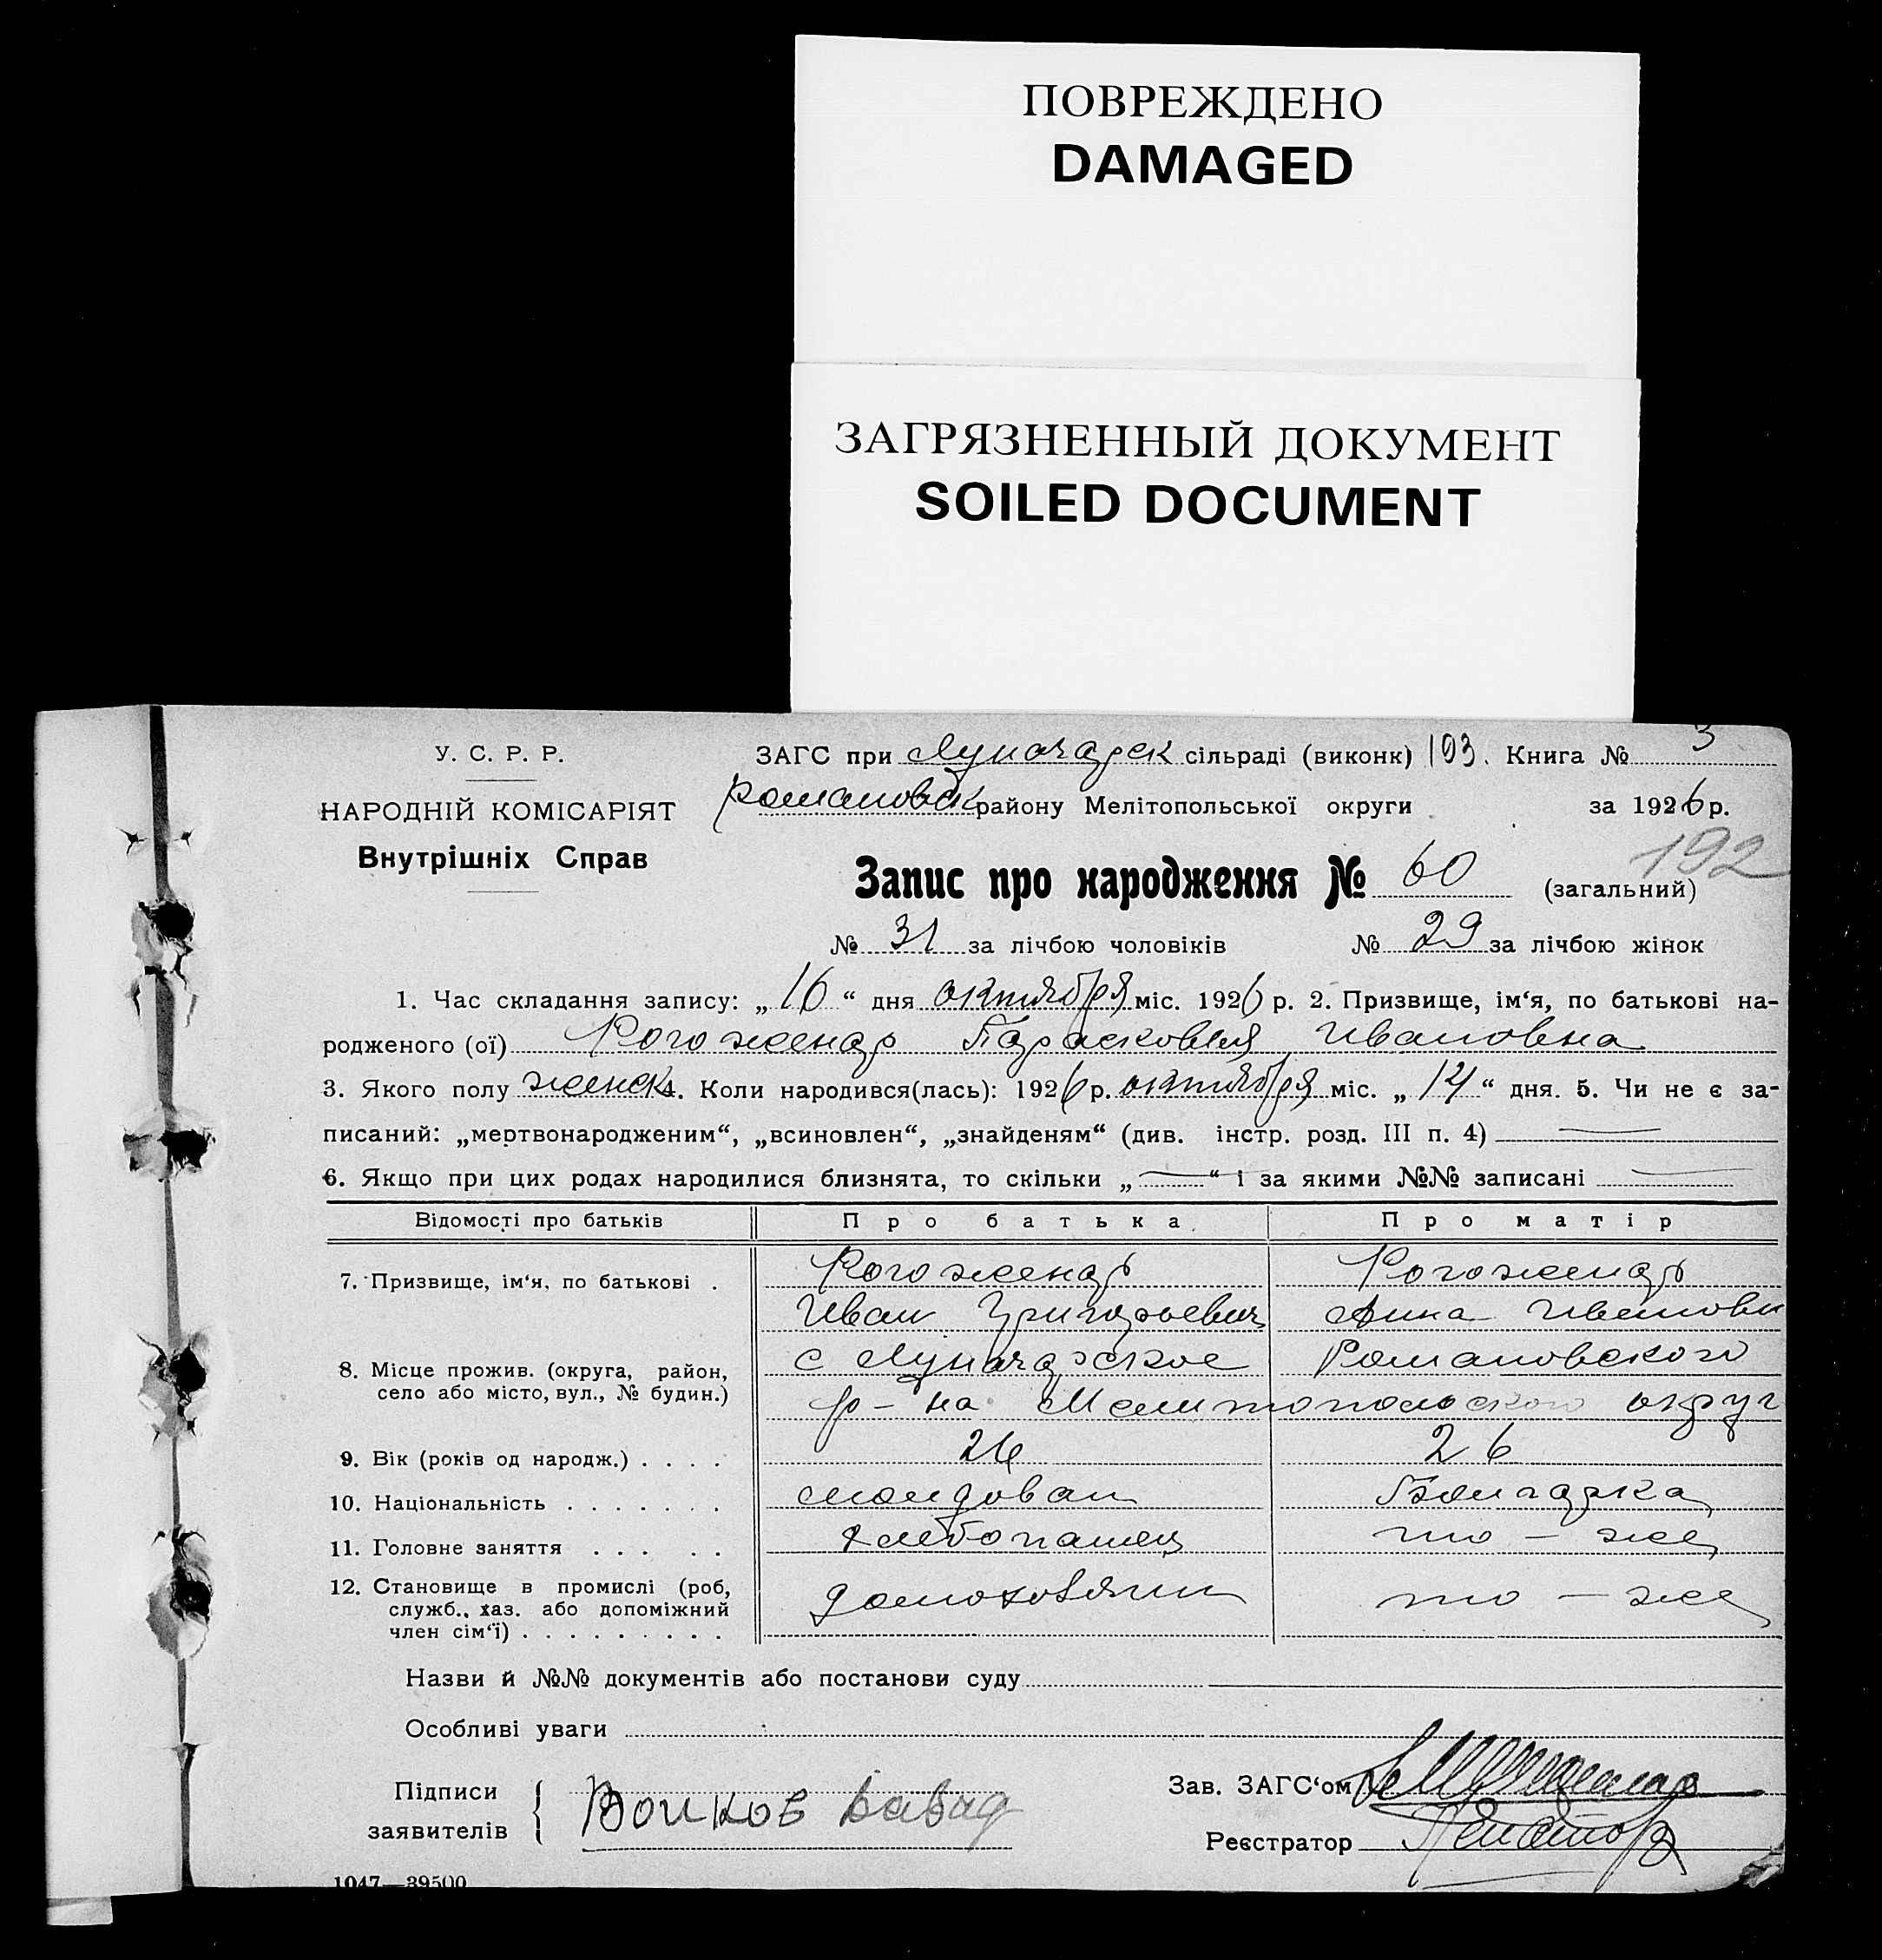 ПОВРЕЖДЕНО
DAMAGED
ЗАГРЯЗНЕННЫЙ ДОКУМЕНТ
SOILED DOCUMENT
У. С. Р. Р.
НАРОДНІЙ КОМІСАРІЯТ
Внутрішніх Справ
ЗАГС при Луначарск сільраді (виконк) 103. Книга № 3
Романовск району Мелітопольської округи за 1926 р.
192
Запис про народження № 60 (загальний)
№ 31 за лічбою чоловіків № 29 за лічбою жінок
1. Час складання запису: „16“ дня октября міс. 1926 р. 2. Призвище, ім‘я, по батькові на-
родженого (ої) Рогоженар Парасковия Ивановна
3. Якого полу женск 4. Коли народився(лась): 1926 р. октября міс. „14“ дня. 5. Чи не є за-
писаний: „мертвонародженим“, „всиновлен“, „знайденям“ (див. інстр. розд. III п. 4) —
6. Якщо при цих родах народилися близнята, то скільки „—“ і за якими №№ записані —
Відомості про батьків Про батька Про матір
7. Призвище, ім‘я, по батькові . Рогоженар Рогоженар
Иван Григорьевич Анна Ивановн
8. Місце прожив. (округа, район, с Луначарское Романовского
село або місто, вул., № будин.) р-на Мелитопольского округ
9. Вік (років од народж.) . . . . 26 26
10. Національність . . . . . . . молдован Болгарка
11. Головне заняття . . . . . хлебопашец то-же
12. Становище в промислі (роб, домохозяин то-же
служб., хаз. або допоміжний
член сім‘ї) . . . . . . . . .
Назви й №№ документів або постанови суду
Особливі уваги
Підписи
заявителів { Волков
Зав. ЗАГС‘ом
Реєстратор
1047—39500